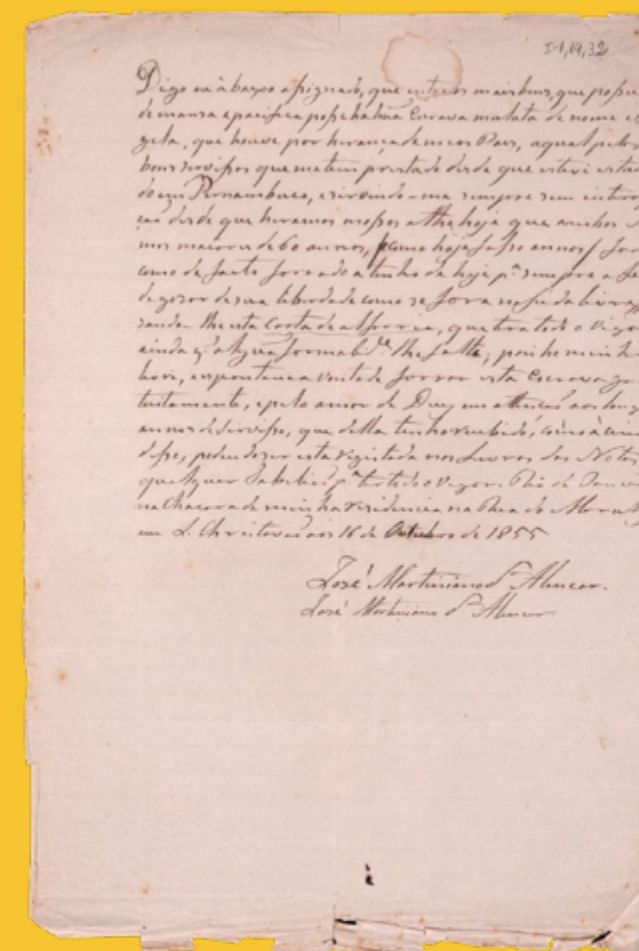 I-1,19,32
Digo eu abaxo assignado, que entre os mais bens, que possu
de mansa e pacifica posse he hũa Escrava mulata de nome
gela, que houve por herança de meos Pais, a qual pelos
bons servissos que me tem prestado desde que estive
do em Pernambuco, e servindo-me sempre sem
ção desde que heramos mossos athe hoje que ambos
mos maiores de 60 annos,
como de facto forrado a tenho de hoje pª sempre
de gozar de sua liberdade como se fora nascida livre
sando-lhe esta Carta de alforria, que terá todo o vigor
ainda q' algũa formalidᵉ lhe falte; pois he minha
hoie, e espontanea vontade forrar esta Escrava
tuitamente, e pelo amor de Deus em attenção aos
annos de servisso, que della tenho recebido, como
disse, podendo ser esta registada nos Livros das Notas
qualquer Tabelião pª ter todo o vigor. Rio de
na Chacara de minha residencia na Rua do
em S. Christovão aos 16 de Outubro de 1855
José Martiniano d'Alencar.
José Martiniano d'Alencar